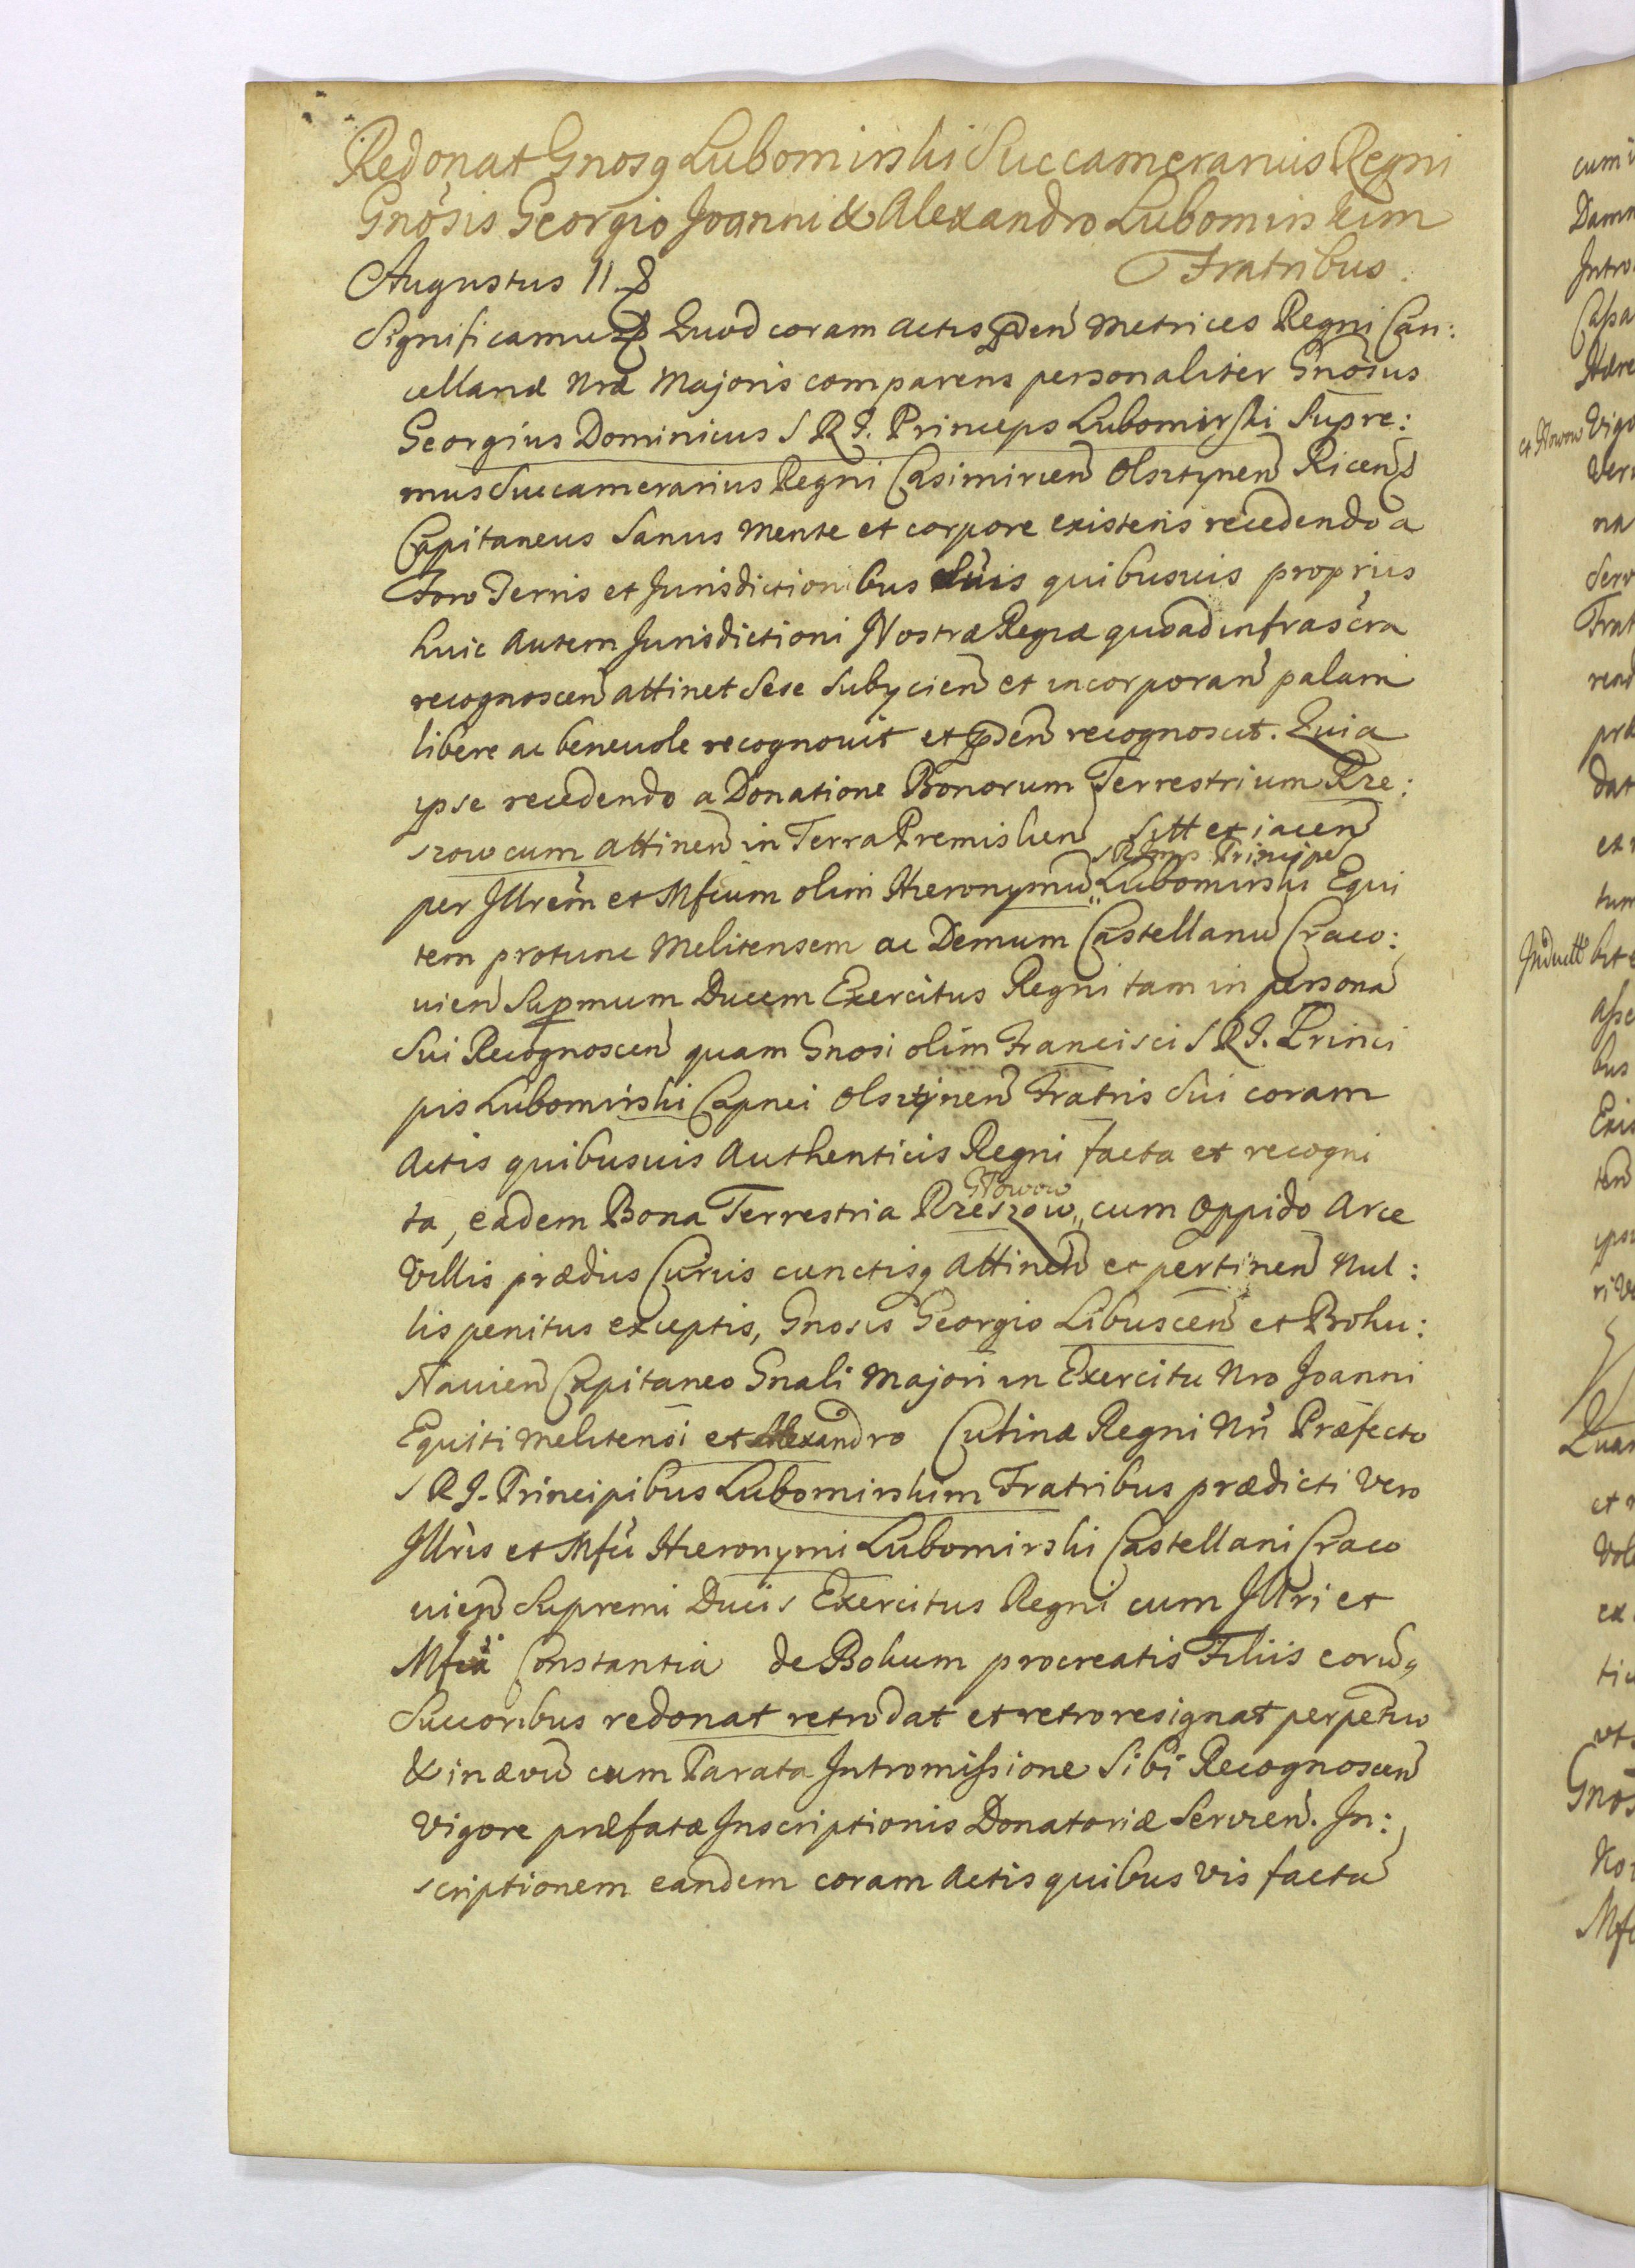 Redonat Gnosq Lubomirski Succamerarius Regni
Gnosis Georgio Joanni & Alexandro Lubomirskim
Fratribus.
Augustus II.
Significamus Quod coram Actis pden Metrices Regni Can:
cellariæ Nræ Majoris comparens personaliter Gnosus
Georgius Dominicus S R I. Princeps Lubomirski Supre:
mus Succamerarius Regni Casimirien Olsztynen Ricens
Capitaneus Sanus Mente et corpore existens recedendo a
Foro Terris et Jurisdictionibus Suis quibusuis proprius
huic autem Jurisdictioni Nostræ Regiæ quoad infrascra
recognoscen attinet Sese Subycien et incorporan palam
libere ac beneuole recognouit et pden recognoscit. Quia
ipse recedendo a Donatione Bonorum Terrestrium Rze:
szow cum attinen in Terra Premislien Sitt et iacen
per Illrem et Mficum olim Hieronymu S R Imp Principe Lubomirski Equi
tem protunc Melitensem ac Demum Castellanu Craco:
uien Supmum Ducem Exercitus Regni tam in persona
Sui Recognoscen quam Gnosi olim Francisci S R I. Princi
pis Lubomirski Capnei Olsztynen Fratris Sui coram
Actis quibusuis Authenticis Regni facta et recogni
ta, eadem Bona Terrestria Rzeszow Głowow cum Oppido Arce
Villis prædiis Curiis cunctisq Attinen et pertinen Nul:
lis penitus exceptis, Gnosis Georgio Libuscen et Bohu:
slauien Capitaneo Gnali Majori in Exercitu Nro Joanni
Equiti Melitensi et Alexandro Culinæ Regni Nri Præfecto
S R I. Principibus Lubomirskim Fratribus prædicti Vero
Illris et Mfci Hieronymi Lubomirski Castellani Craco
uien Supremi Ducis Exercitus Regni cum Illri et
Mfca Constantia de Bohum procreatis Filiis eoruq
Succoribus redonat retrodat et retroresignat perpetuo
& in ævu cum Parata Intromissione Sibi Recognoscen
Vigore præfatæ Inscriptionis Donatoriæ Servien. In:
scriptionem eandem coram Actis quibus Vis facta